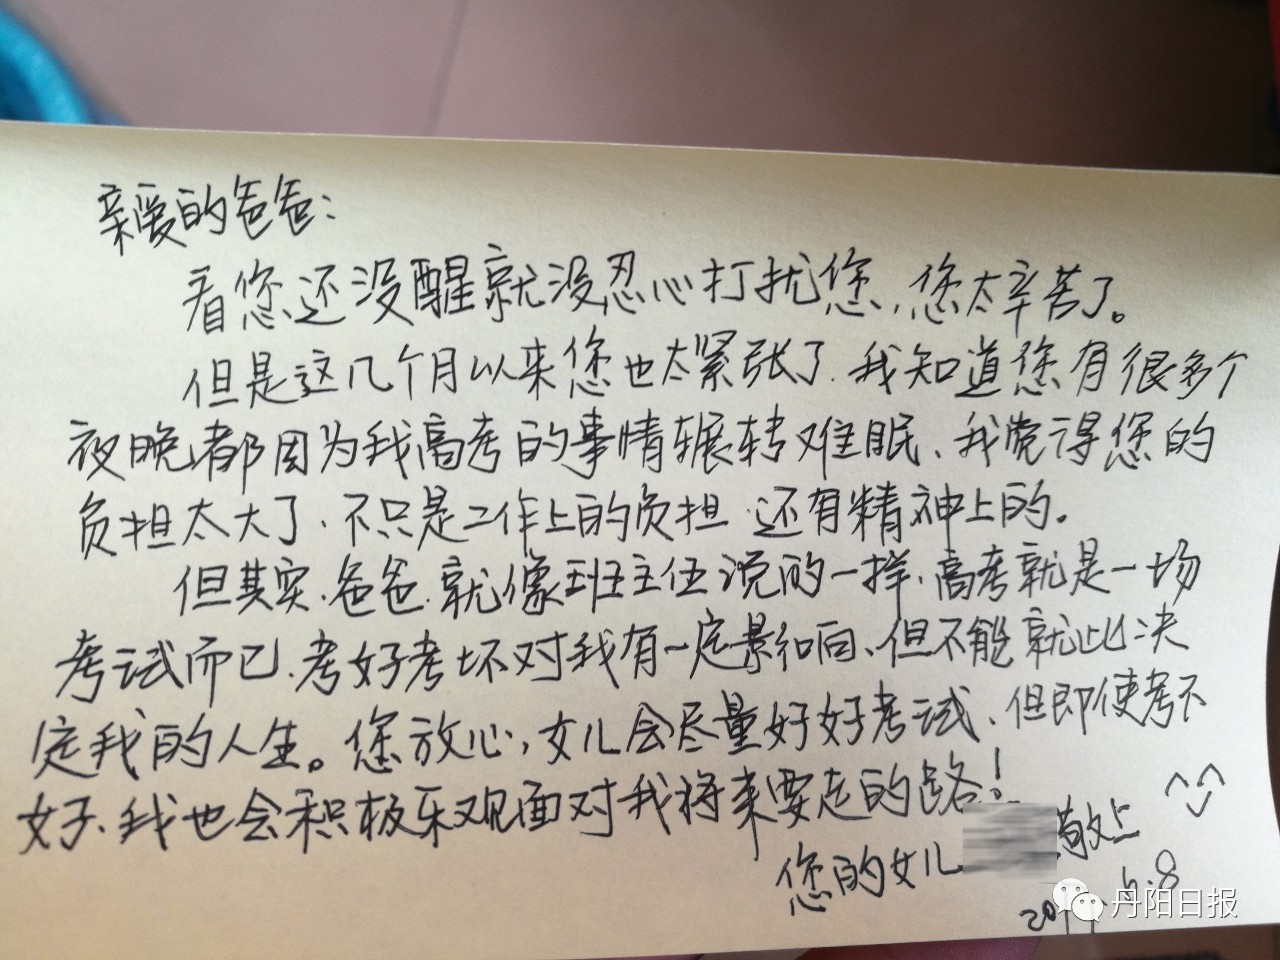 亲爱的爸爸：
看您还没醒就没忍心打扰您，您太辛苦了。
但是这几个月以来您也太紧张了，我知道您有很多个
夜晚都因为我高考的事情辗转难眠、我觉得您的
负担太大了、不只是工作上的负担，还有精神上的。
但其实，爸爸，就像班主任说的一样，高考就是一场
考试而已，考好考坏对我有一定影响、但不能就此决
定我的人生。您放心，女儿会尽量好好考试、但即使考不
好、我也会积极乐观面对我将来要走的路！
您的女儿 敬上
6.8
丹阳日报